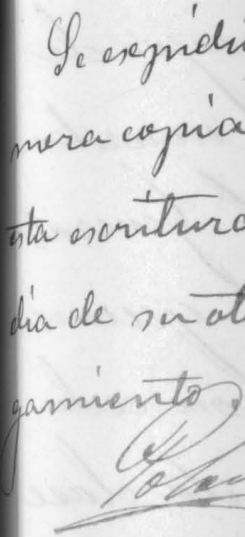 Se expidió
mera copia
esta escritura
dia de su ot
gamiento.